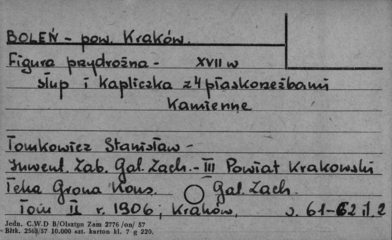 BOLEŃ - pow. Kraków.
Figura przydrożna - XVII w
słup i kapliczka z 4 płaskorzeźbami
Kamienne
Tomkowicz Stanisław -
Inwent. Zab. Gal. Zach. - III Powiat Krakowski
Teka Grona Kons. Gal. Zach.
Tom II r. 1906, Kraków, s. 61-62 il. 2
Jedn. C.W D B/Olsztyn Zam 2776 /on/ 57
Błtk. 2563/57 10.000 szt. karton kl. 7 g 220.